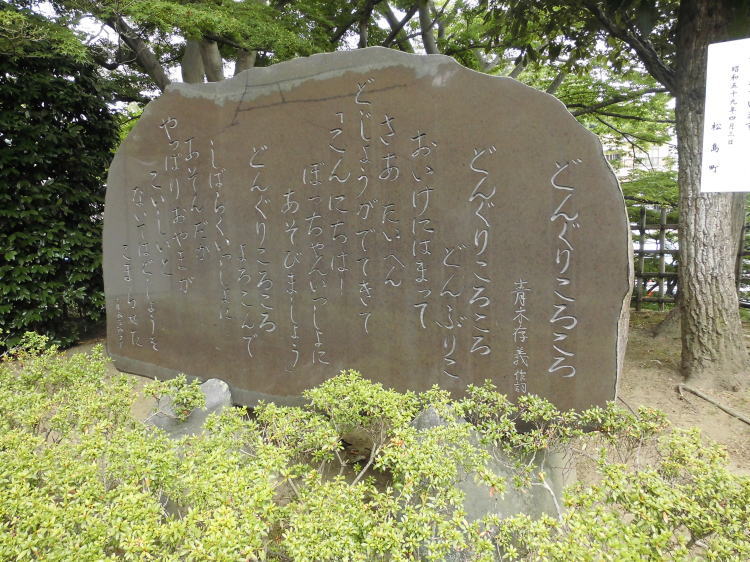 どんぐりころころ
青木存義 作詞
どんぐりころころ
どんぶりこ
おいけにはまって
さあ たいへん
どじょうがでてきて
「こんにちは!
ぼっちゃんいっしょに
あそびましょう」
どんぐりころころ
よろこんで
しばらくいっしょに
あそんだが
やっぱりおやまが
こいしいと
ないてはどじょうを
こまらせた
昭和五十九年四月三日
松島町